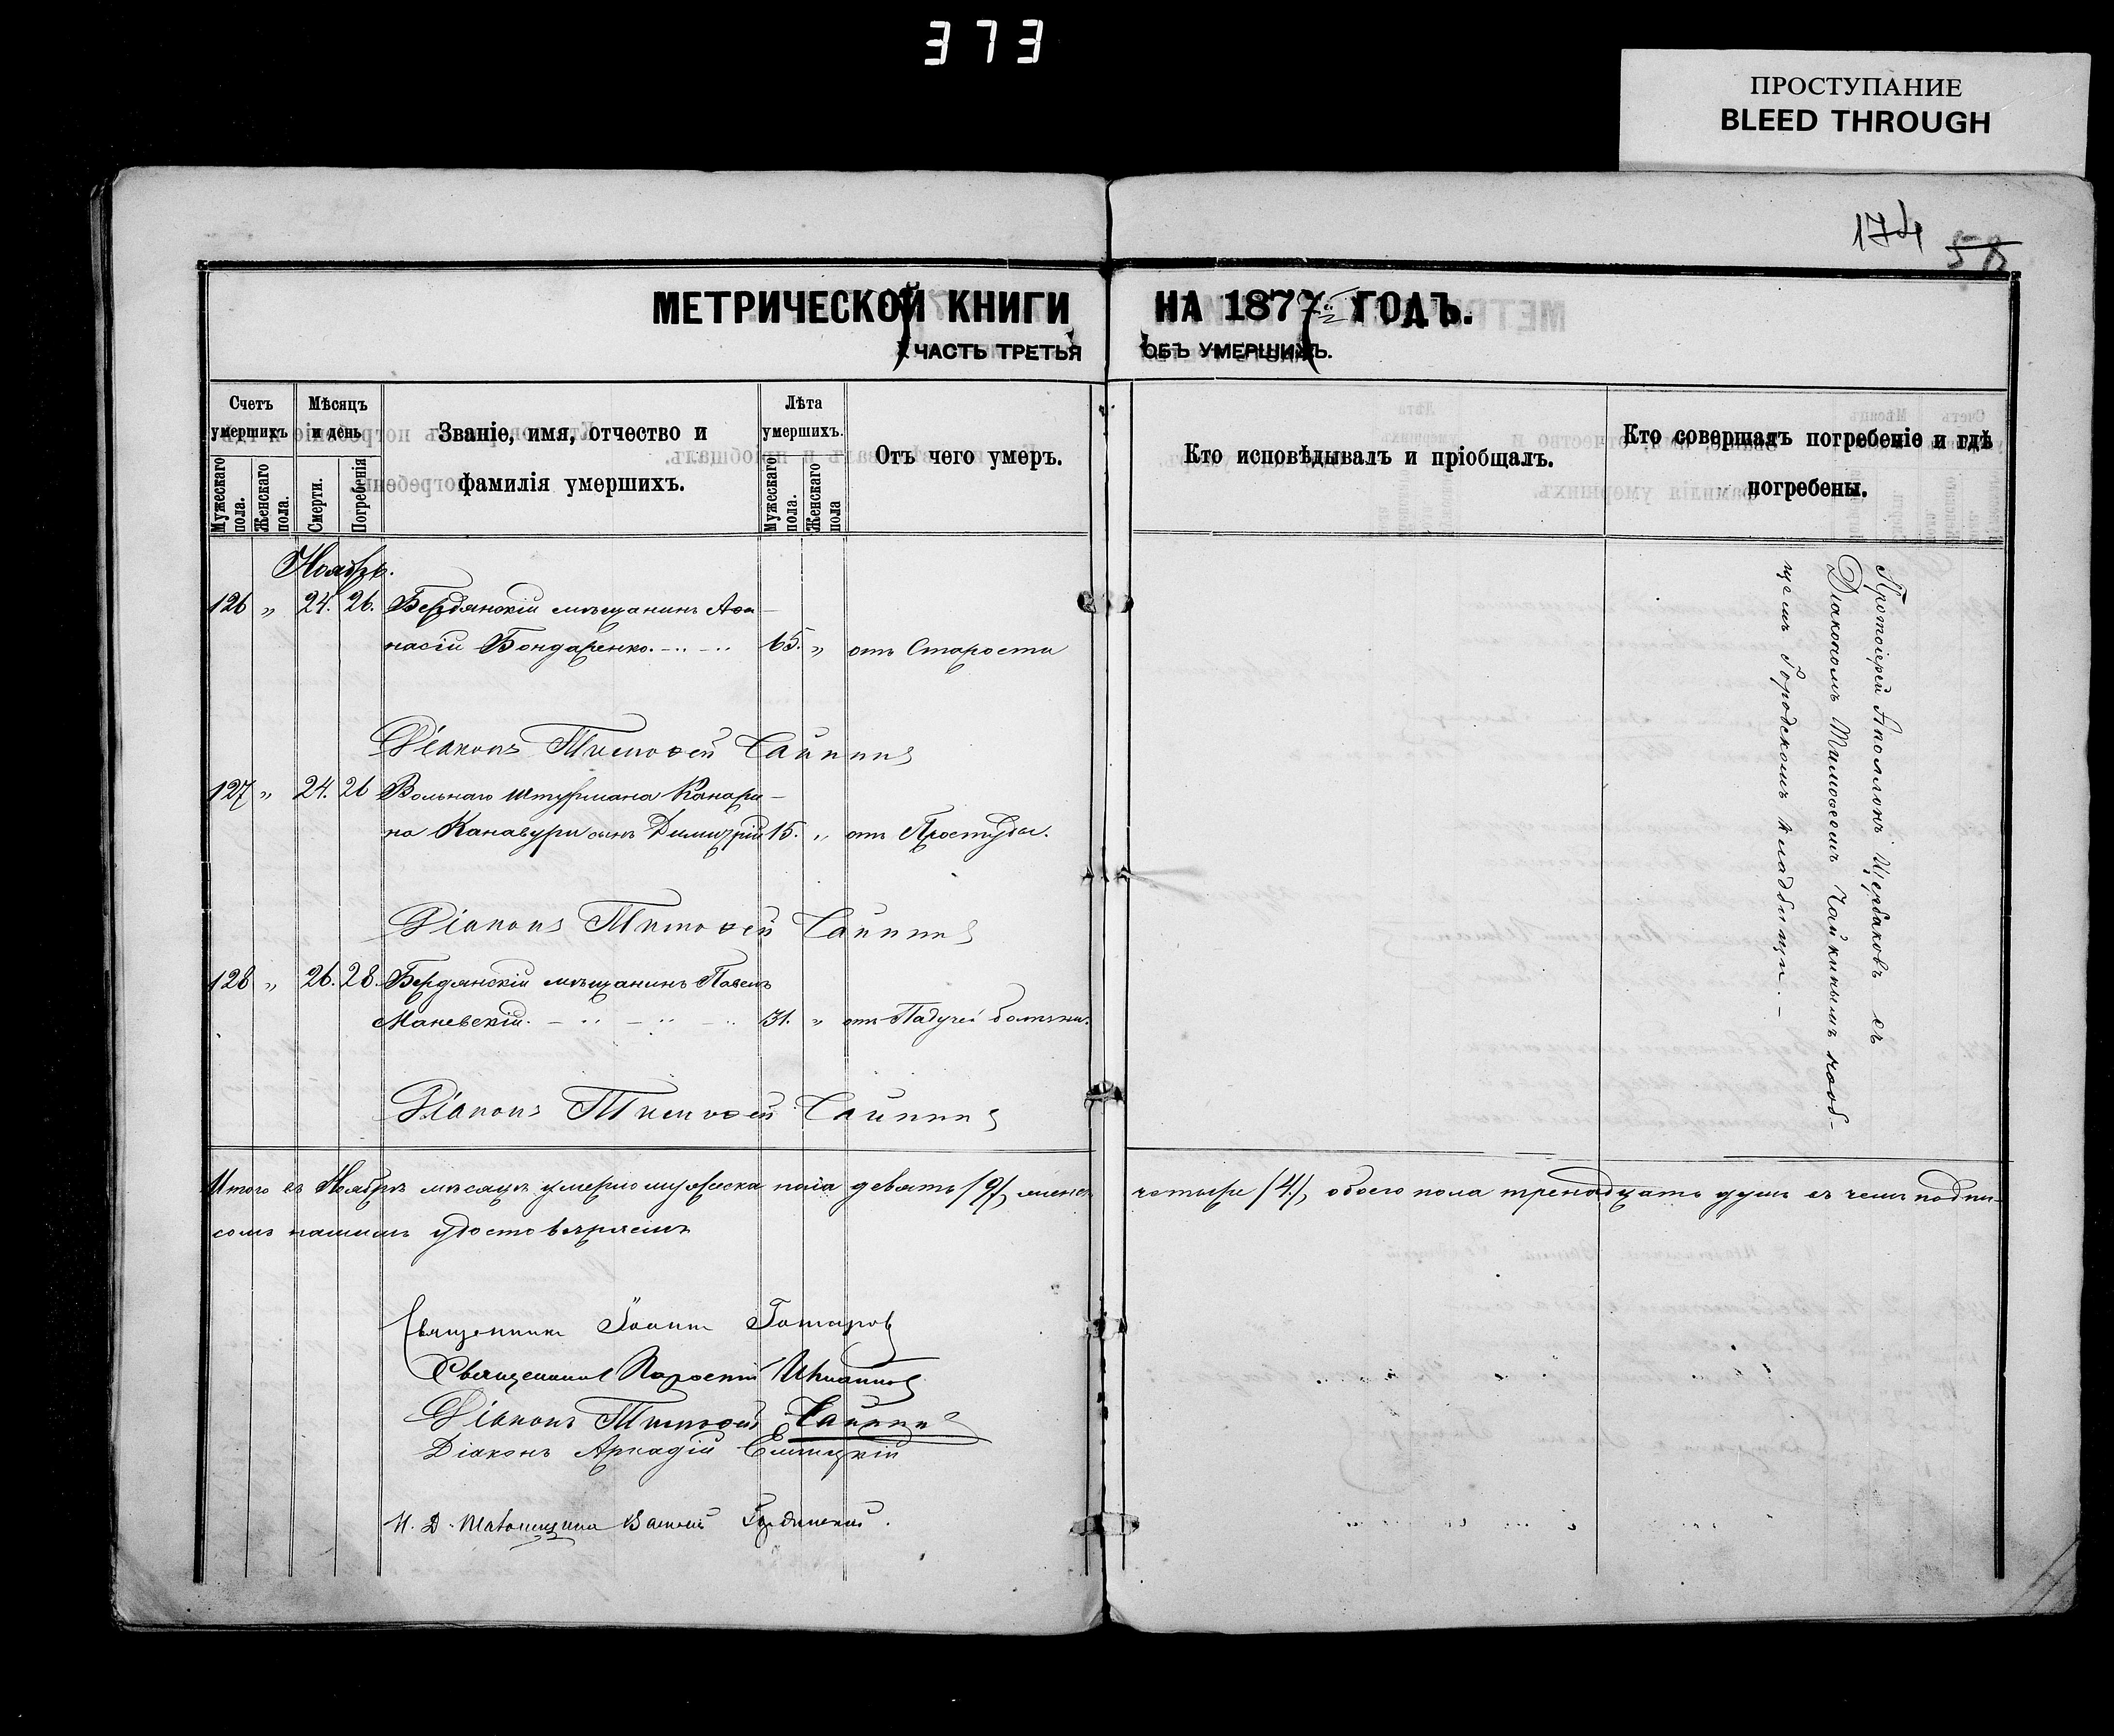 373
ПРОСТУПАНИЕ
BLEED THROUGH
174 58
МЕТРИЧЕСКОЙ КНИГИ НА 1877й ГОДЪ.
ЧАСТЬ ТРЕТЬЯ ОБЪ УМЕРШИХЪ.
Счетъ умершихъ
Мужескаго пола.
Женскаго пола.
Мѣсяцъ и день
Смерти.
Погребенія
Званіе, имя, отчество и
фамилія умершихъ.
Лѣта умершихъ.
Мужескаго пола.
Женскаго пола
Отъ чего умеръ.
Кто исповѣдывалъ и пріобщалъ.
Кто совершалъ погребеніе и гдѣ
погребены.
Ноябрь.
126 „ 24. 26. Бердянскій мѣщанинъ Аѳа-
насій Бондаренко. 65. „ отъ Старости
Діаконъ Тимоѳей Чайкинъ
127 „ 24. 26 Вольнаго Штурмана
на Канавури сынъ Димитрій 15. „ отъ Простуды.
Діаконъ Тимоѳей Чайкинъ
128 „ 26. 28. Бердянскій мѣщанинъ Павелъ
Маневскій. 31. „ отъ Падучей болѣзни.
Діаконъ Тимоѳей Чайкинъ
Протоіерей Аполлонъ Щербаковъ съ
Діакономъ Тимоѳеемъ Чайкинымъ на об-
щемъ Городскомъ кладбищи.
Итого въ Ноябрѣ мѣсяцѣ умерло мужеска пола девять /9/, женск. четыре /4/, обоего пола тренадцать душъ въ чемъ подпи-
сомъ нашимъ удостовѣряемъ
Священникъ Іоаннъ
Священникъ
Діаконъ Тимоѳей Чайкинъ
Діаконъ Аркадій
И. Д. Псаломщика